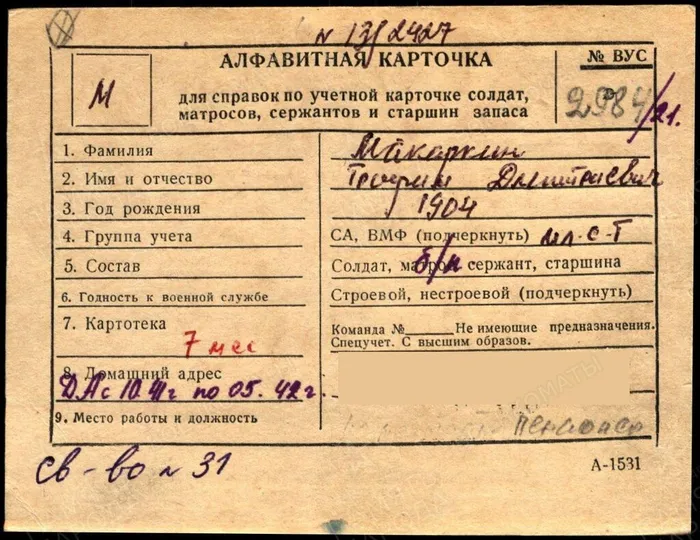 N 13/2427
АЛФАВИТНАЯ КАРТОЧКА
№ ВУС
М
для справок по учетной карточке солдат,
матросов, сержантов и старшин запаса
2984/21.
1. Фамилия Макаркин
2. Имя и отчество Трофим Дмитриевич
3. Год рождения 1904
4. Группа учета СА, ВМФ (подчеркнуть) мл-с-т
5. Состав Солдат, матрос, сержант, старшина б/н
6. Годность к военной службе Строевой, нестроевой (подчеркнуть)
7. Картотека Команда №______Не имеющие предназначения.
7 мес Спецучет. С высшим образов.
8. Домашний адрес
ДА с 10.41г по 05.42г.
9. Место работы и должность пенсионер
св-во N 31
А-1531